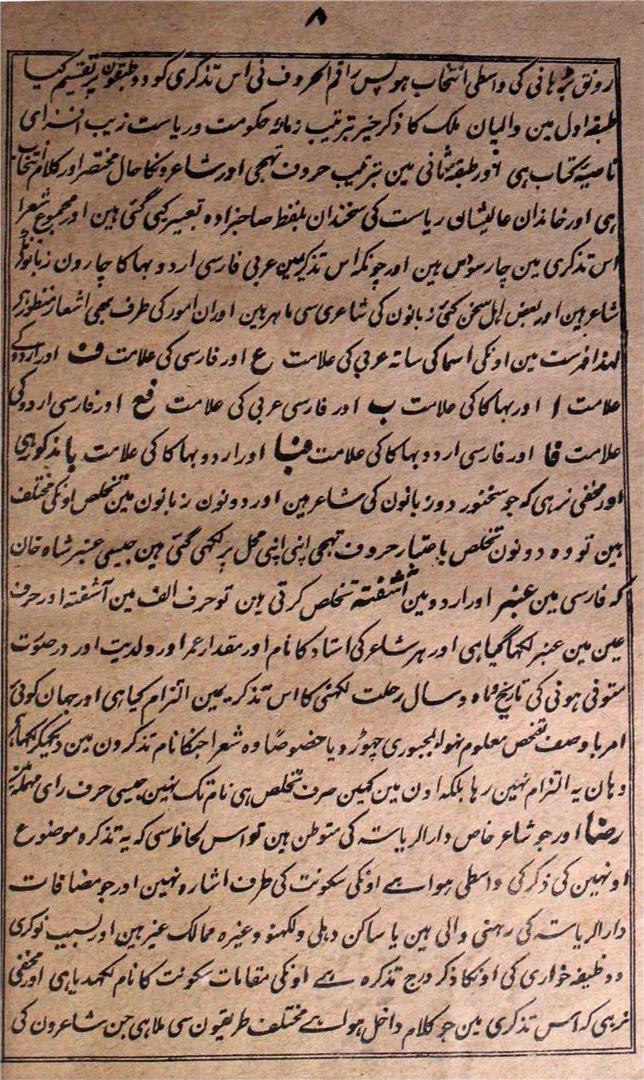 ۸
رونق برہانی کی واسطی انتخاب ہو پس راقم الحروف نی اس تذکری کو دو طبقون پر تقسیم کیا
طبقہ اول مین والیان ملک کا ذکر خیر بترتیب زمانہ حکومت و ریاست زیب افزای
ناصیہ کتاب ہی اور طبقہ ثانی مین بترتیب حروف تہجی اور شاعرونکا حال مختصر اور کلام انتخاب
ہی اور خاندان عالیشان ریاست کی سخندان بلفظ صاحبزادہ تعبیر کیی گئی ہین اور مجموع شعرا
اس تذکری مین چار سو دس ہین اور چونکہ اس تذکری مین عربی فارسی اردو بہاکا چارون زبانونکی
شاعر ہین اور بعض اہل سخن کئی زبانون کی شاعری سی ماہر ہین اور ان امور کی طرف بھی اشعار منظور ہی
لہذا فہرست مین اونکی اسما کی ساتہ عربی کی علامت ع اور فارسی کی علامت ف اور اردو کے
علامت ا اور بہاکا کی علامت ب اور فارسی عربی کی علامت فع اور فارسی اردو کی
علامت فا اور فارسی اردو بہاکا کی علامت فبا اور اردو بہاکا کی علامت با مذکور ہی
اور مخفی نرہی کہ جو سخنور دو زبانون کی شاعر ہین اور دونون زبانون مین تخلص اونکی مختلف
ہین تو وہ دونون تخلص باعتبار حروف تہجی اپنی اپنی محل پر لکھی گئی ہین جیسی عنبر شاہ خان
کہ فارسی مین عنبر اور اردو مین آشفتہ تخلص کرتی ہین تو حرف الف مین آشفتہ اور حرف
عین مین عنبر لکھا گیا ہی اور ہر شاعر کی استاد کا نام اور مقدار عمر اور ولدیت اور در صوت
متوفی ہونی کی تاریخ و ماہ و سال رحلت لکھنی کا اس تذکر یمین التزام کیا ہی اور جہان کوئی
امر باوصف تفحص معلوم نہوا بمجبوری چھوڑ دیا خصوصًا وہ شعرا جنکا نام تذکرون مین دیکھکر لکھا ہی
وہان یہ التزام نہین رہا بلکہ اون مین کہین صرف تخلص ہی نام تک نہین جیسی حرف رای مہملہ مین
رضا اور جو شاعر خاص دار الریاستہ کی متوطن ہین تو اس لحاظ سی کہ یہ تذکرہ موضوع
اونہین کی ذکر کی واسطی ہوا ہے اونکی سکونت کی طرف اشارہ نہین اور جو مضافات
دار الریاستہ کی رہنی والی ہین یا ساکن دہلی و لکھنو و غیرہ ممالک غیر ہین اور بسبب نوکری
و وظیفہ خواری کی اونکا ذکر درج تذکرہ ہے اونکی مقامات سکونت کا نام لکھدیا ہی اور مخفی
نرہی کہ اس تذکری مین جو کلام داخل ہوا ہے مختلف طریقون سی ملا ہی جن شاعرون کی